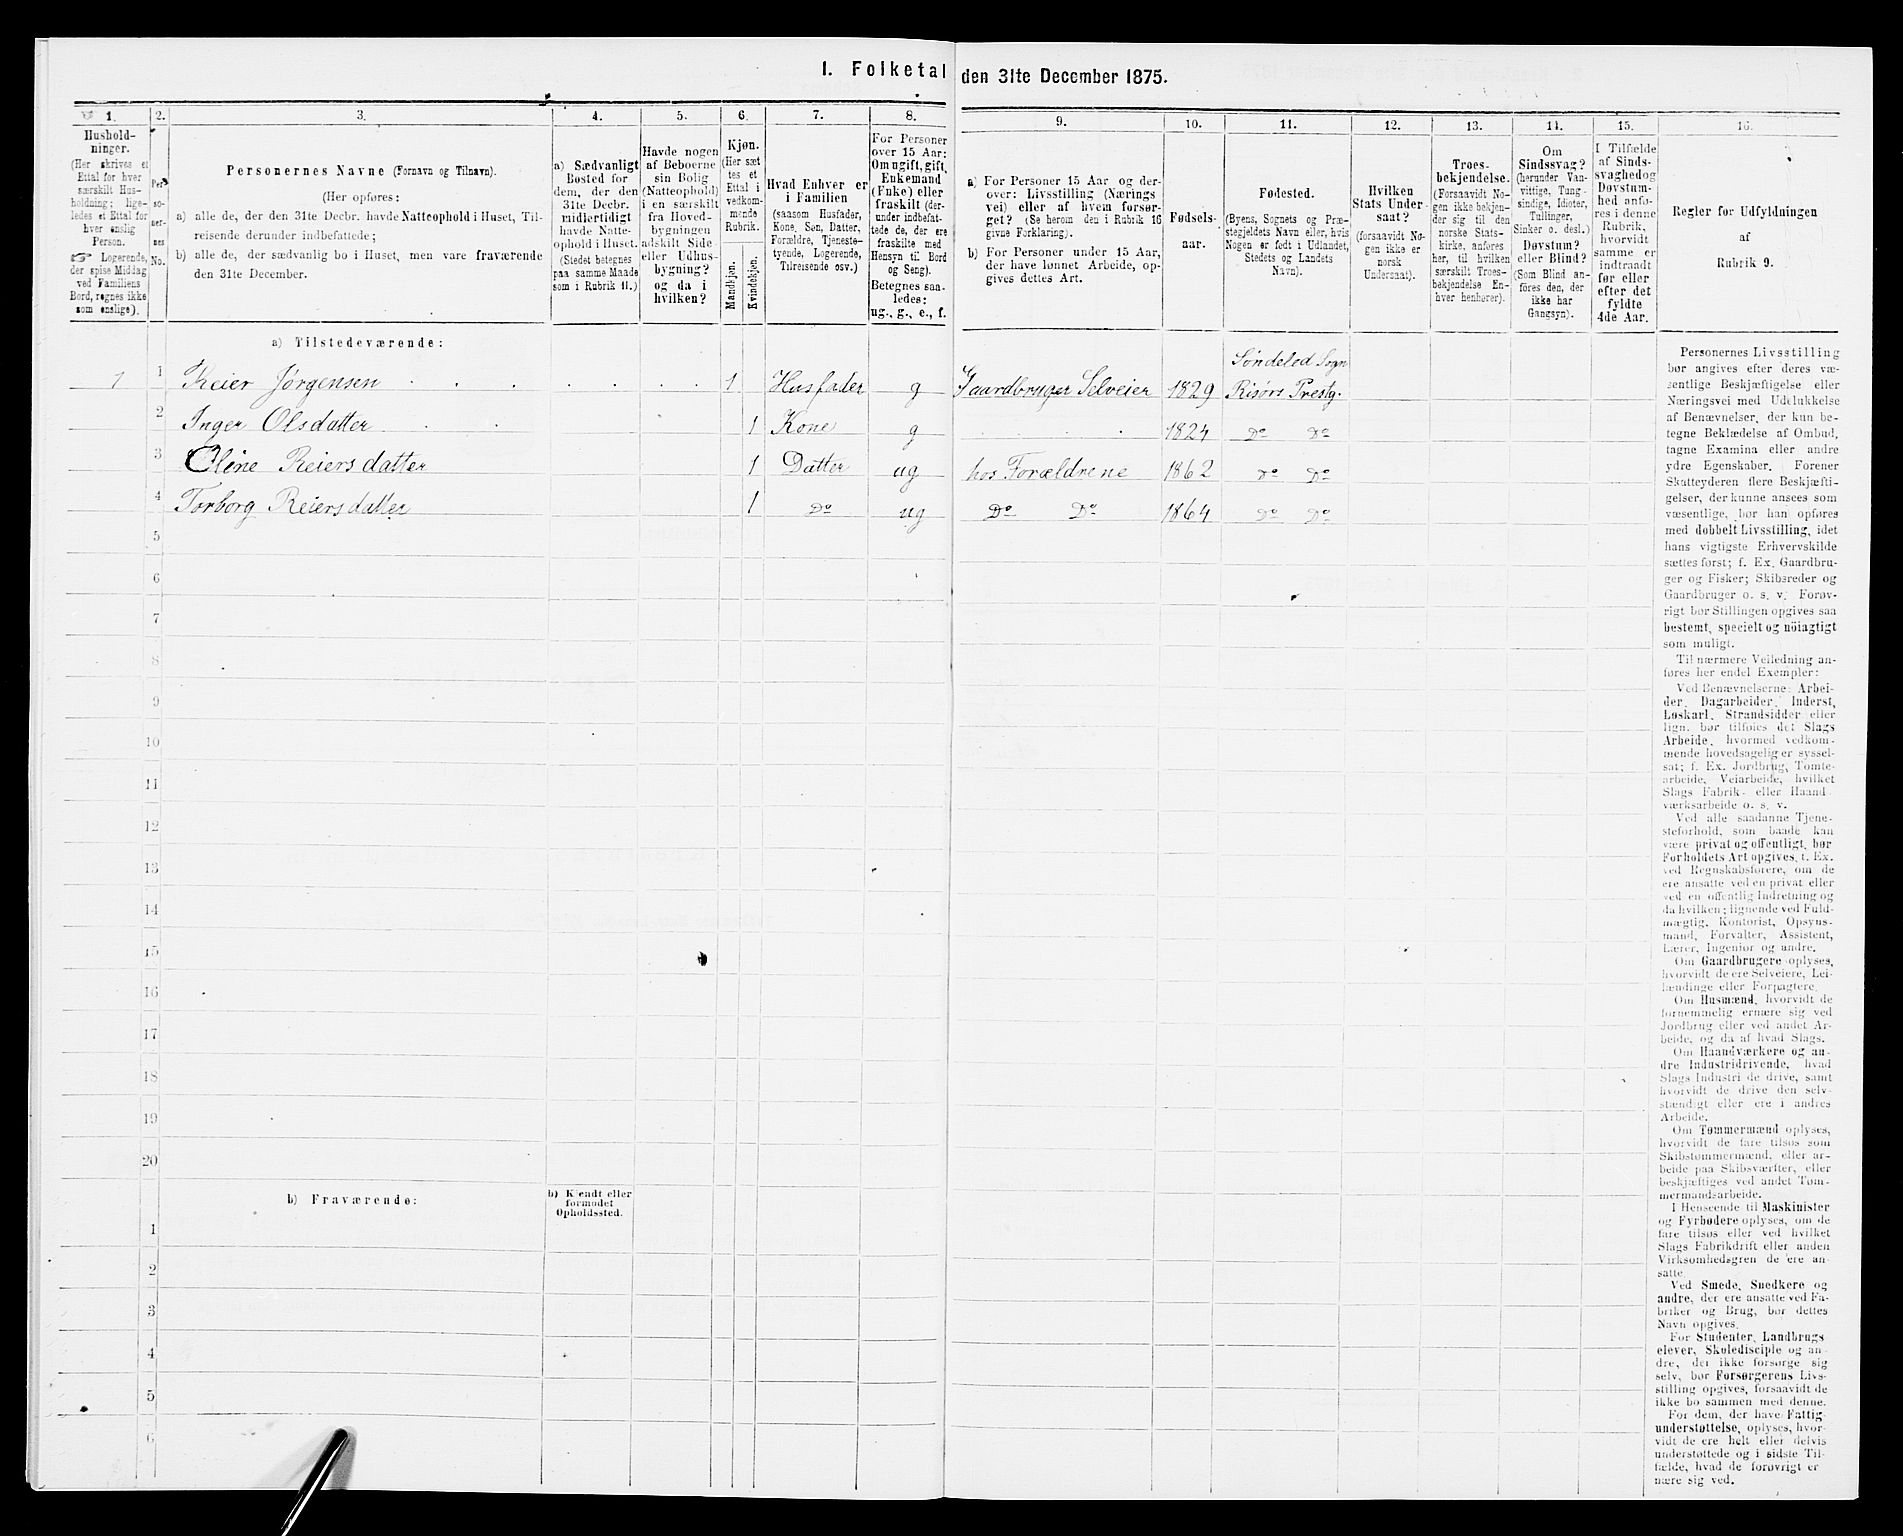 I. Folketal den 31te December 1875.
1. 2. 3. 4. 5. 6. 7. 8. 9. 10. 11. 12. 13. 14. 15. 16.
Hushold-
ninger.
(Her skrives et
Ettal for hver
særskilt Hus-
holdning; lige-
ledes et Ettal for
hver enslig
Person.
☞ Logerende,
der spise Middag
ved Familiens
Bord, regnes ikke
som enslige).
Per-
so-
ner-
nes
No.
Personernes Navne (Fornavn og Tilnavn).
(Her opføres:
a) alle de, der den 31te Decbr. havde Natteophold i Huset, Til-
reisende derunder indbefattede;
b) alle de, der sædvanlig bo i Huset, men vare fraværende
den 31te December.
a) Sædvanligt
Bosted for
dem, der den
31te Decbr.
midlertidigt
havde Natte-
ophold i Huset.
(Stedet betegnes
paa samme Maade
som i Rubrik 11.)
Havde nogen
af Beboerne
sin Bolig
(Natteophold)
i en særskilt
fra Hoved-
bygningen
adskilt Side-
eller Udhus-
bygning?
og da i
hvilken?
Kjøn.
(Her sæt
tes et
Ettal i
vedkom-
mende
Rubrik.
Mandkjøn.
Kvindekjøn.
Hvad Enhver er
i Familien
(saasom Husfader,
Kone, Søn, Datter,
Forældre, Tjeneste-
tyende, Logerende,
Tilreisende osv.)
For Personer
over 15 Aar:
Om ugift, gift,
Enkemand
(Enke) eller
fraskilt (der-
under indbefat-
tede de, der ere
fraskilte med
Hensyn til Bord
og Seng).
Betegnes saa-
ledes:
ug., g., e., f.
a) For Personer 15 Aar og der-
over: Livsstilling (Nærings
vei) eller af hvem forsør-
get? (Se herom den i Rubrik 16
givne Forklaring).
b) For Personer under 15 Aar,
der have lønnet Arbeide, op-
gives dettes Art.
Fødsels-
aar.
Fødested.
(Byens, Sognets og Præ-
stegjeldets Navn eller, hvis
Nogen er født i Udlandet,
Stedets og Landets
Navn).
Hvilken
Stats Under
saat?
(forsaavidt No-
gen ikke er
norsk
Undersaat).
Troes-
bekjendelse.
(Forsaavidt No-
gen ikke bekjen-
der sig til den
norske Stats-
kirke, anføres
her, til hvilken
særskilt Troes-
bekjendelse En-
hver henhører).
Om
Sindssvag?
(herunder Van-
vittige, Tung-
sindige, Idioter,
Tullinger,
Sinker o. desl.)
Døvstum?
eller Blind?
(Som Blind an-
føres den, der
ikke har
Gangsyn).
I Tilfælde
af Sinds-
svaghed og
Døvstum-
hed anfø-
res i denne
Rubrik,
hvorvidt
samme er
indtraadt
før eller
efter det
fyldte
4de Aar.
Regler for Udfyldningen
af
Rubrik 9.
a) Tilstedeværende:
1 1 Reier Jørgensen 1 Husfader g Gaardbruger Selveier 1829 Søndeled Sogn
Risørs Prestg.
2 Inger Olsdatter 1 Kone g 1824 Do Do
3 Oline Reiersdatter 1 Datter ug hos Forældrene 1862 Do Do
4 Torborg Reiersdatter 1 Do ug Do Do 1864 Do Do
5
6
7
8
9
10
11
12
13
14
15
16
17
18
19
20
b) Fraværende:
b) Kjendt eller
formodet
Opholdssted.
1
2
3
4
5
6
Personernes Livsstilling
bør angives efter deres væ-
sentlige Beskjæftigelse eller
Næringsvei med Udelukkelse
af Benævnelser, der kun be-
tegne Beklædelse af Ombud,
tagne Examina eller andre
ydre Egenskaber. Forener
Skatteyderen flere Beskjæfti-
gelser, der kunne ansees som
væsentlige, bør han opføres
med dobbelt Livsstilling, idet
hans vigtigste Erhvervskilde
sættes først; f. Ex. Gaardbru-
ger og Fisker; Skibsreder og
Gaardbruger o. s. v. Forøv-
rigt bør Stillingen opgives saa
bestemt, specielt og nöiagtigt
som muligt.
Til nærmere Veiledning an-
føres her endel Exempler:
Ved Benævnelserne: Arbei-
der, Dagarbeider, Inderst,
Løskarl, Strandsidder eller
lign. bør tilføies det Slags
Arbeide, hvormed vedkom-
mende hovedsagelig er syssel-
sat; f. Ex. Jordbrug, Tomte-
arbeide, Veiarbeide, hvilket
Slags Fabrik- eller Haand-
værksarbeide o. s. v.
Ved alle saadanne Tjene-
steforhold, som baade kan
være privat og offentligt, bør
Forholdets Art opgives, f. Ex.
ved Regnskabsførere, om de
ere ansatte ved en privat eller
ved en offentlig Indretning og
da hvilken; lignende ved Fuld-
mægtig, Kontorist, Opsyns-
mand, Forvalter, Assistent,
Lærer, Ingeniør og andre.
Om Gaardbrugere oplyses,
hvorvidt de ere Selveiere, Lei-
lændinge eller Forpagtere.
Om Husmænd, hvorvidt de
fornemmelig ernære sig ved
Jordbrug eller ved andet Ar-
beide, og da af hvad Slags.
Om Haandværkere og an-
dre Industridrivende, hvad
Slags Industri de drive, samt
hvorvidt de drive den selv-
stændigt eller ere i andres
Arbeide.
Om Tømmermænd oplyses,
hvorvidt de fare tilsøs som
Skibstømmermænd, eller ar-
beide paa Skibsværfter, eller
beskjæftiges ved andet Tøm-
mermandsarbeide.
I Henseende til Maskinister
og Fyrbødere oplyses, om de
fare tilsøs eller ved hvilket
Slags Fabrikdrift eller anden
Virksomhedsgren de ere an-
satte.
Ved Smede, Snedkere og
andre, der ere ansatte ved Fa-
briker og Brug, bør dettes
Navn opgives.
For Studenter, Landbrugs
elever, Skoledisciple og an-
dre, der ikke forsørge sig
selv, bør Forsørgerens Livs-
stilling opgives, forsaavidt de
ikke bo sammen med denne.
For dem, der have Fattig-
understøttelse, oplyses, hvor-
vidt de ere helt eller delvis
understøttede og i sidste Til-
fælde, hvad de forøvrigt er
nære sig ved.